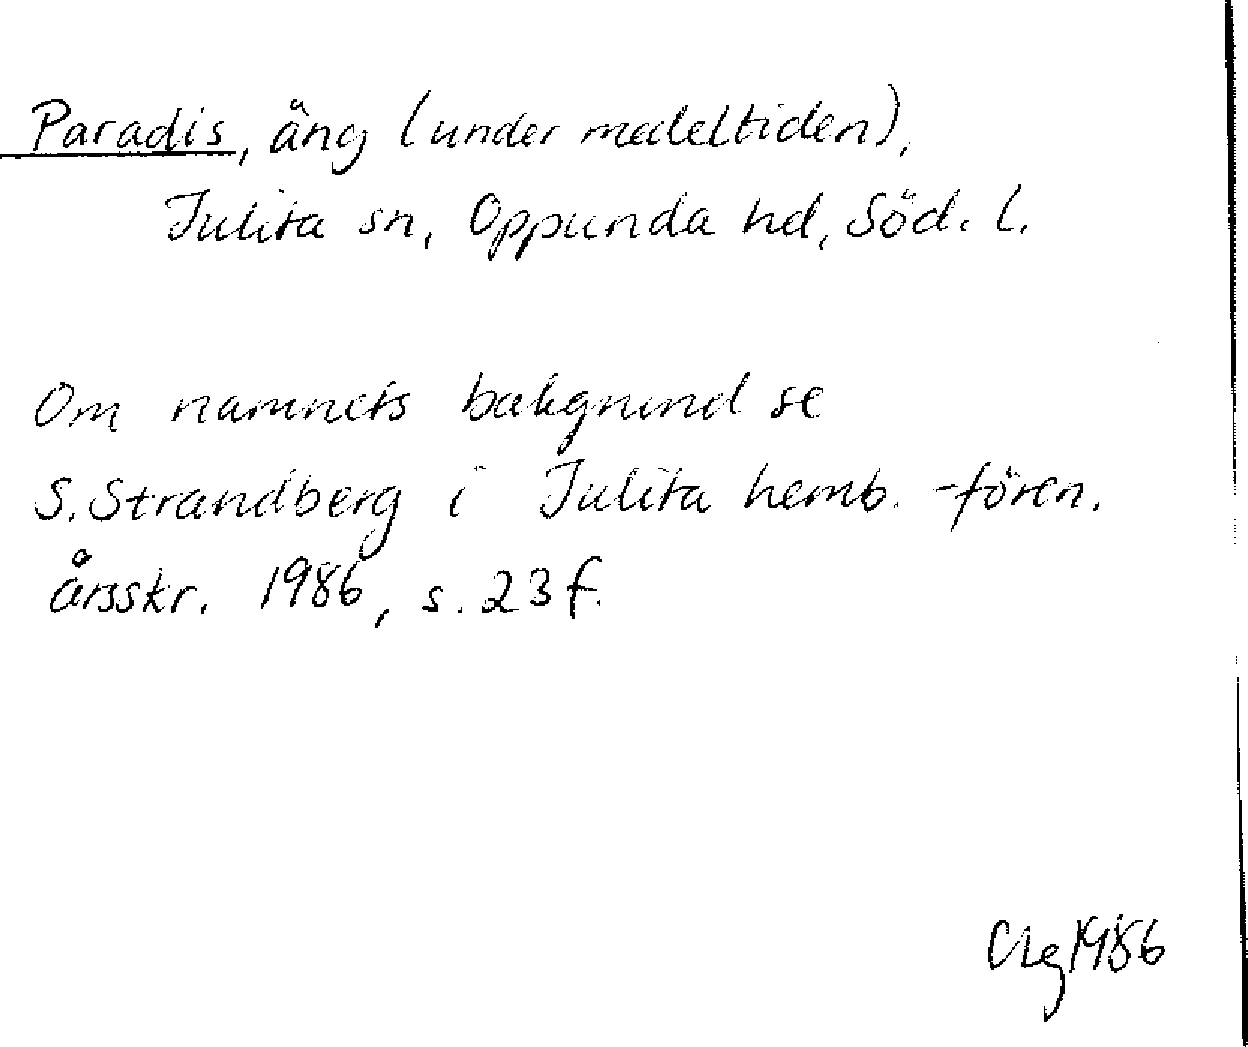 Paradis, äng (under medeltiden),
Julita sn, Oppunda hd, Söd. l.
Om namnets bakgrund se
S. Strandberg i Julita hemb.-fören.
årsskr. 1986, s. 23 f.
1986